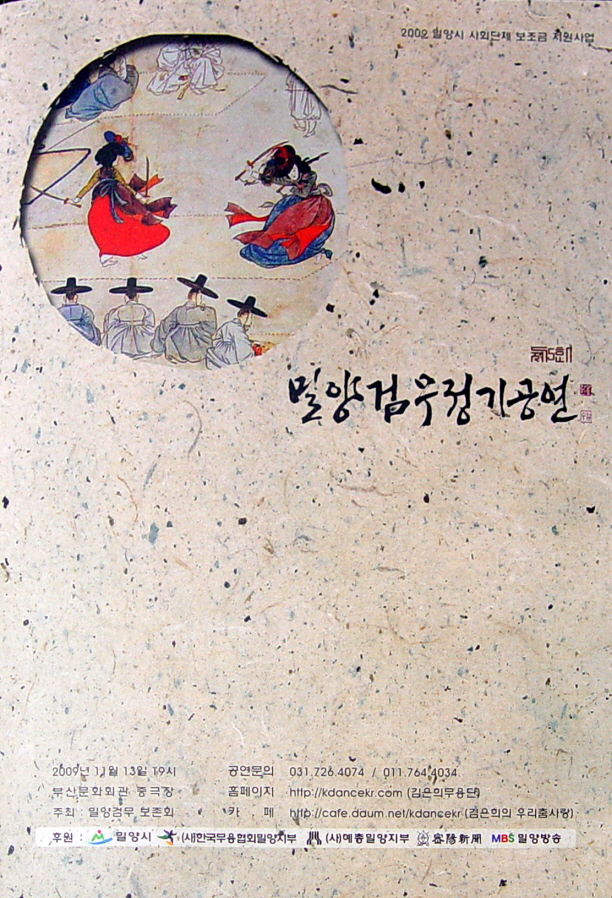 2009 밀양시 사회단체 보조금 지원사업
제5회
밀양검무정기공연
2009년 11월 13일 19시 공연문의 031.726.4074 / 011.764.4034
부산문화회관 중극장 홈페이지 http://kdancekr.com (김은희무용단)
주최 : 밀양검무 보존회 카 페 http://cafe.daum.net/kdancekr (김은희의 우리춤사랑)
후원 : 밀양시 (사)한국무용협회밀양지부 (사)예총밀양지부 密陽新聞 MBS 밀양방송